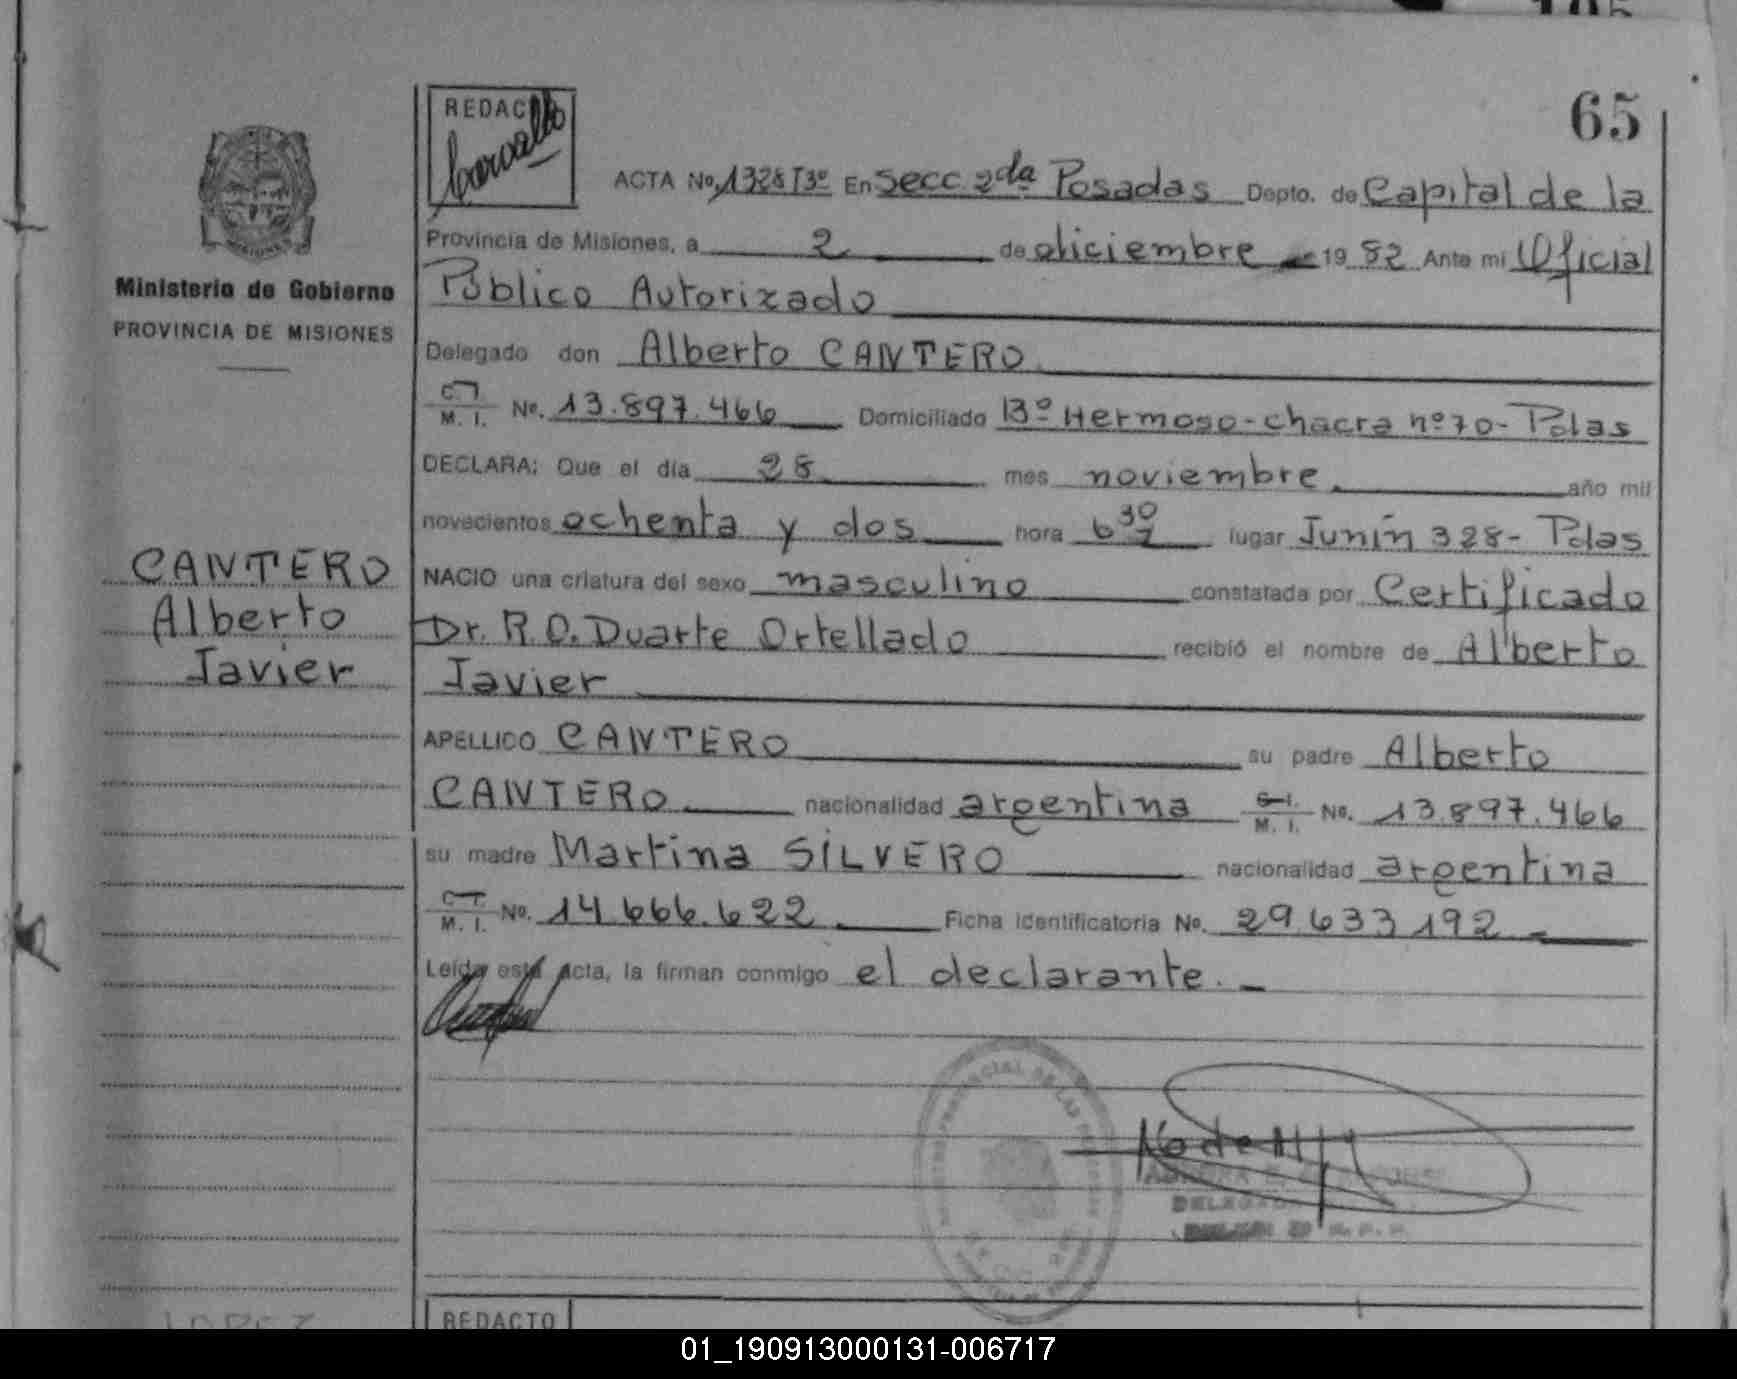 65
REDACTO
Carvallo
ACTA No. 1328 T3º En Secc. 2da Posadas Depto. de Capital de la
Provincia de Misiones, a 2 de diciembre 19 82 Ante mi Oficial
Ministerio de Gobierno
PROVINCIA DE MISIONES
Público Autorizado
Delegado don Alberto CANTERO
C. I. M. I. No. 13.897.466 Domiciliado Bº Hermoso - chacra nº 70 - Pdas
DECLARA: Que el día 28 mes noviembre año mil
novecientos ochenta y dos hora 6 30 lugar Junín 328 - Pdas
CANTERO
Alberto
Javier
NACIO una criatura del sexo masculino constatada por Certificado
Dr. R. O. Duarte Ortellado recibió el nombre de Alberto
Javier
APELLIDO CANTERO su padre Alberto
CANTERO nacionalidad argentina C. I. M. I. No. 13.897.466
su madre Martina SILVERO nacionalidad argentina
C. I. M. I. No. 14.666.622 Ficha identificatoria No. 29.633.192
Leída esta acta, la firman conmigo el declarante.
DELEGADA
LOPEZ
REDACTO
01_190913000131-006717